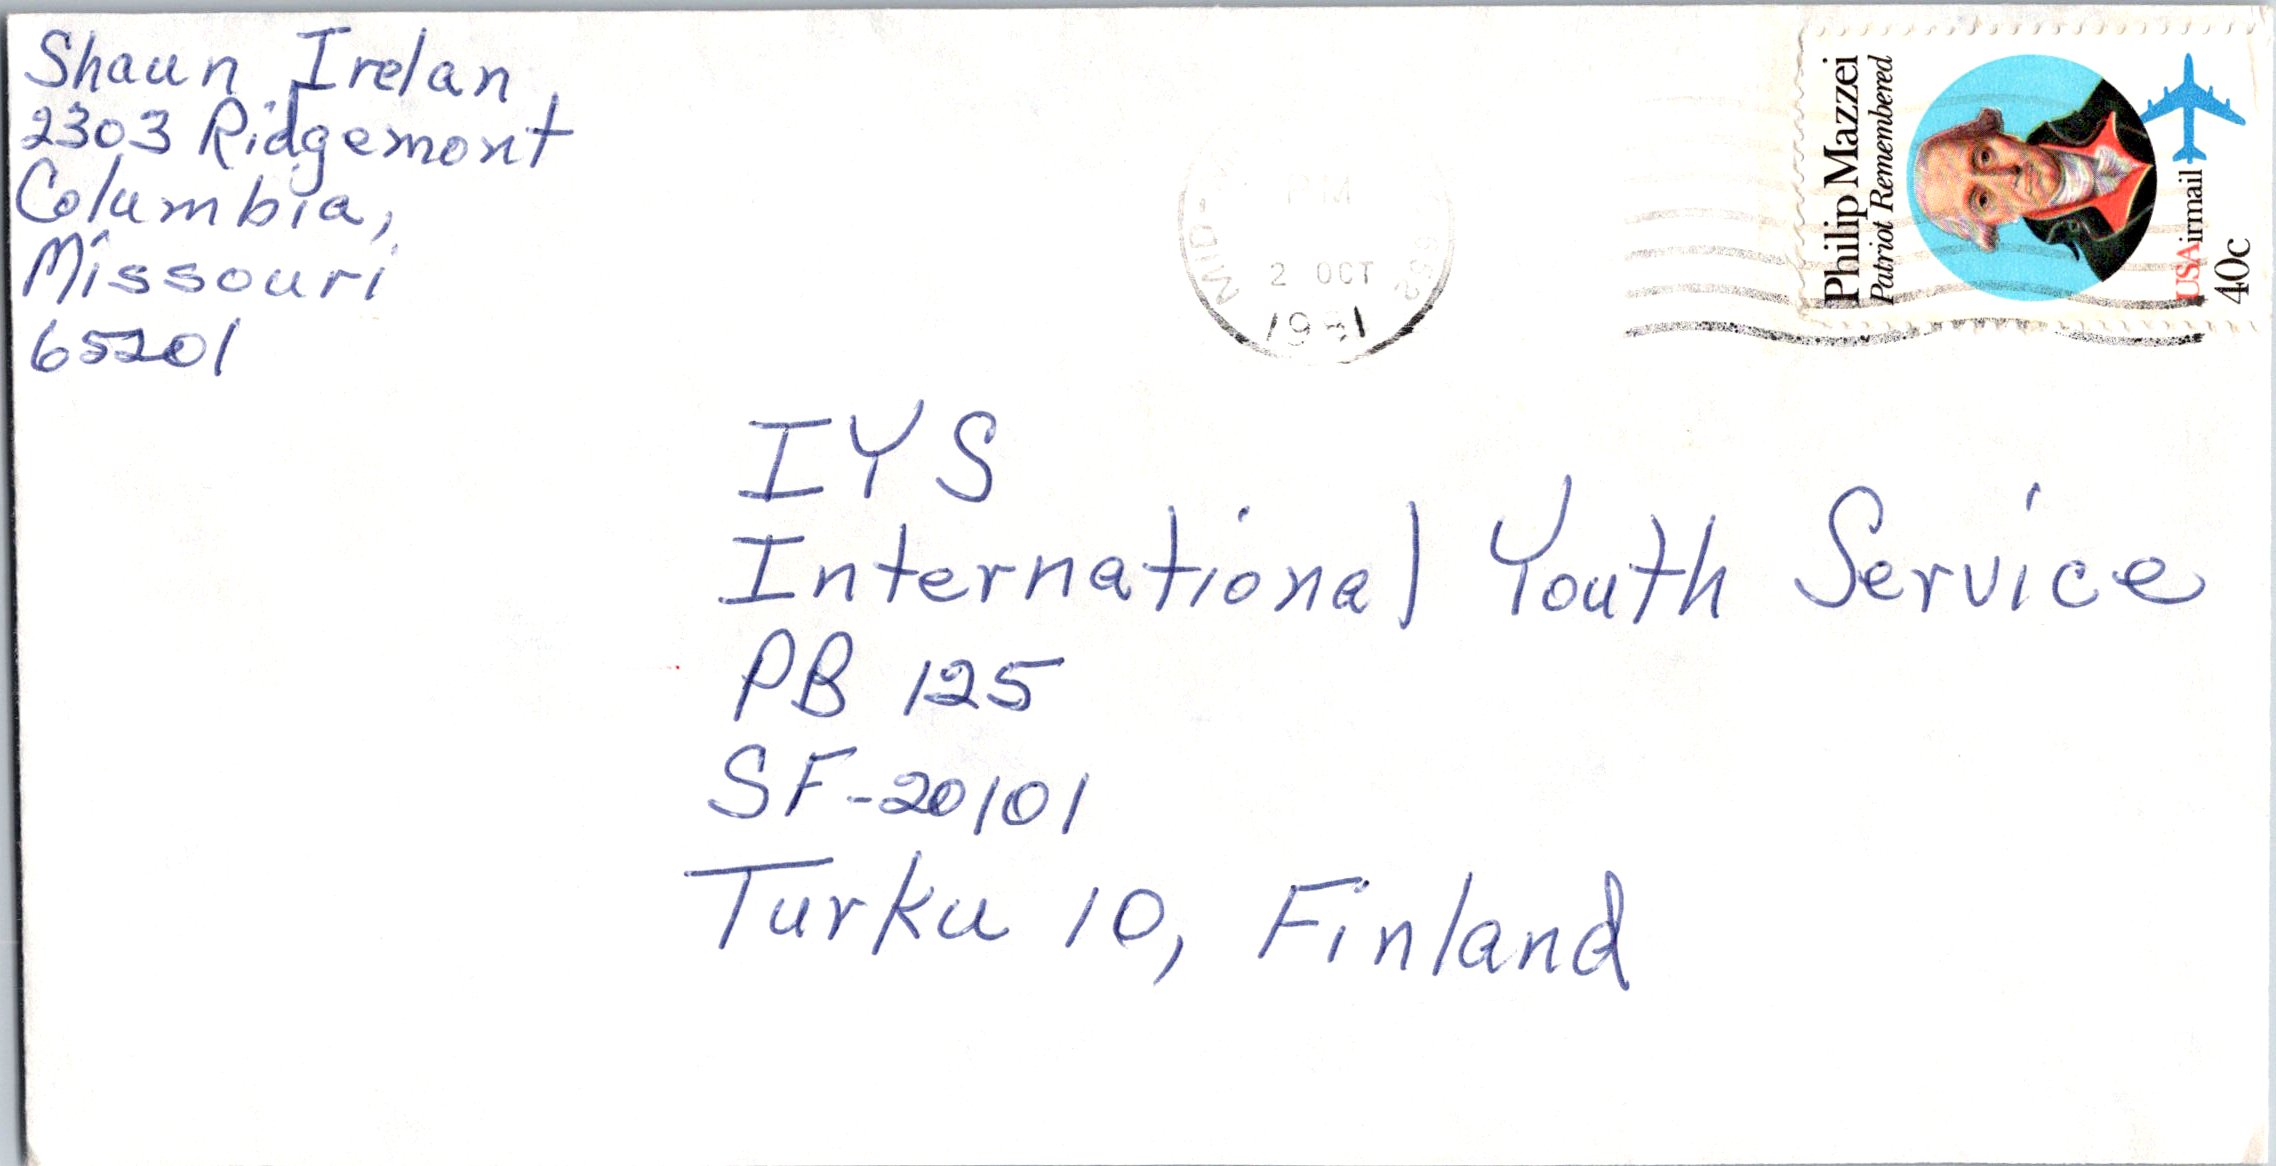 Shaun Irelan
2303 Ridgemont
Columbia,
Missouri
65201
PM
MID-
2 OCT
652
Philip Mazzei
Patriot Remembered
USAirmail
40c
IYS
International Youth Service
PB 125
SF-20101
Turku 10, Finland